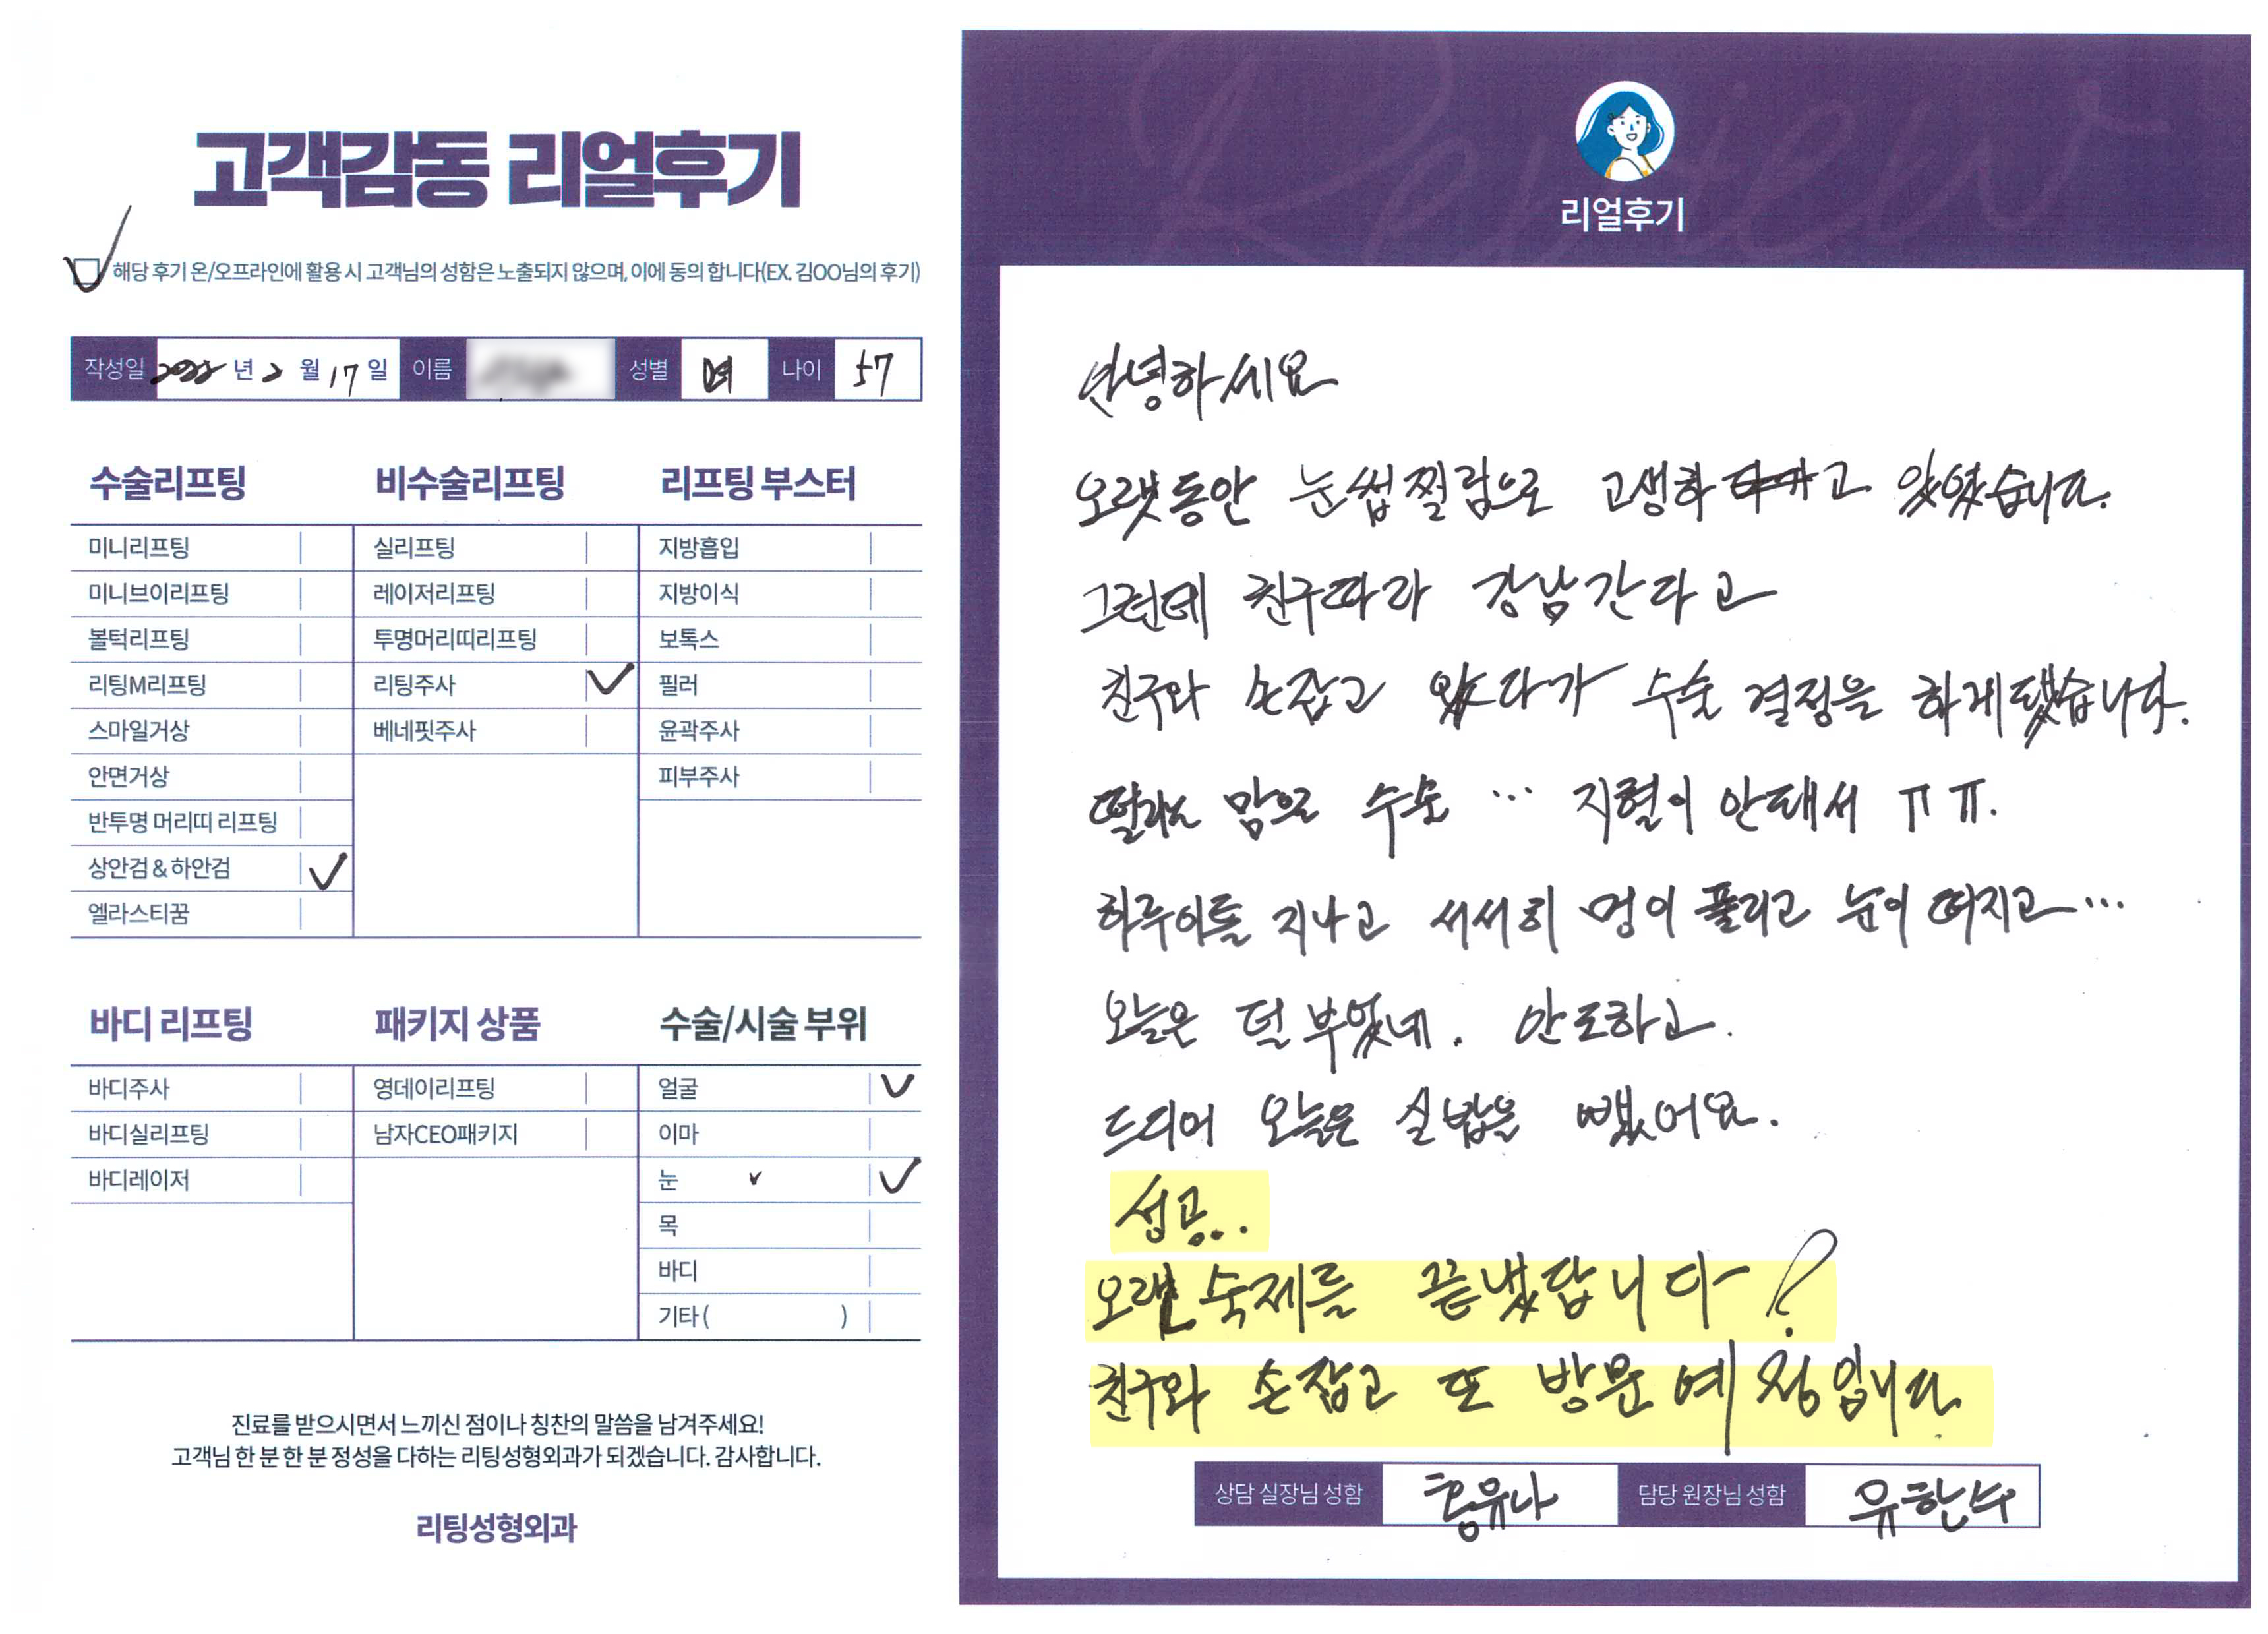 고객감동 리얼후기
해당 후기 온/오프라인에 활용 시 고객님의 성함은 노출되지 않으며, 이에 동의 합니다(EX. 김OO님의 후기)
작성일 2022 년 2 월 17 일 이름 성별 여 나이 57
수술리프팅
미니리프팅
미니브이리프팅
볼턱리프팅
리팅M리프팅
스마일거상
안면거상
반투명 머리띠 리프팅
상안검 & 하안검
엘라스티꿈
비수술리프팅
실리프팅
레이저리프팅
투명머리띠리프팅
리팅주사
베네핏주사
리프팅 부스터
지방흡입
지방이식
보톡스
필러
윤곽주사
피부주사
바디 리프팅
바디주사
바디실리프팅
바디레이저
패키지 상품
영데이리프팅
남자CEO패키지
수술/시술 부위
얼굴
이마
눈
목
바디
기타 ( )
진료를 받으시면서 느끼신 점이나 칭찬의 말씀을 남겨주세요!
고객님 한 분 한 분 정성을 다하는 리팅성형외과가 되겠습니다. 감사합니다.
리팅성형외과
Review
리얼후기
안녕하세요
오랫동안 눈썹찔림으로 고생하고 있었습니다.
그런데 친구따라 강남간다고
친구와 손잡고 왔다가 수술 결정을 하게됐습니다.
떨리는 맘으로 수술 ... 지혈이 안돼서 ㅠㅠ.
하루이틀 지나고 서서히 멍이 풀리고 눈이 떠지고...
오늘은 덜 부었네. 안도하고.
드디어 오늘은 실밥을 뺐어요.
성공..
오랜 숙제를 끝냈답니다!
친구와 손잡고 또 방문예정입니다.
상담 실장님 성함 홍유나 담당 원장님 성함 유한수